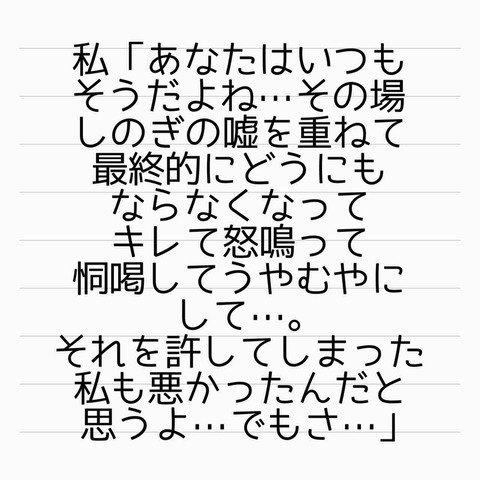 私「あなたはいつも
そうだよね…その場
しのぎの嘘を重ねて
最終的にどうにも
ならなくなって
キレて怒鳴って
恫喝してうやむやに
して…。
それを許してしまった
私も悪かったんだと
思うよ…でもさ…」